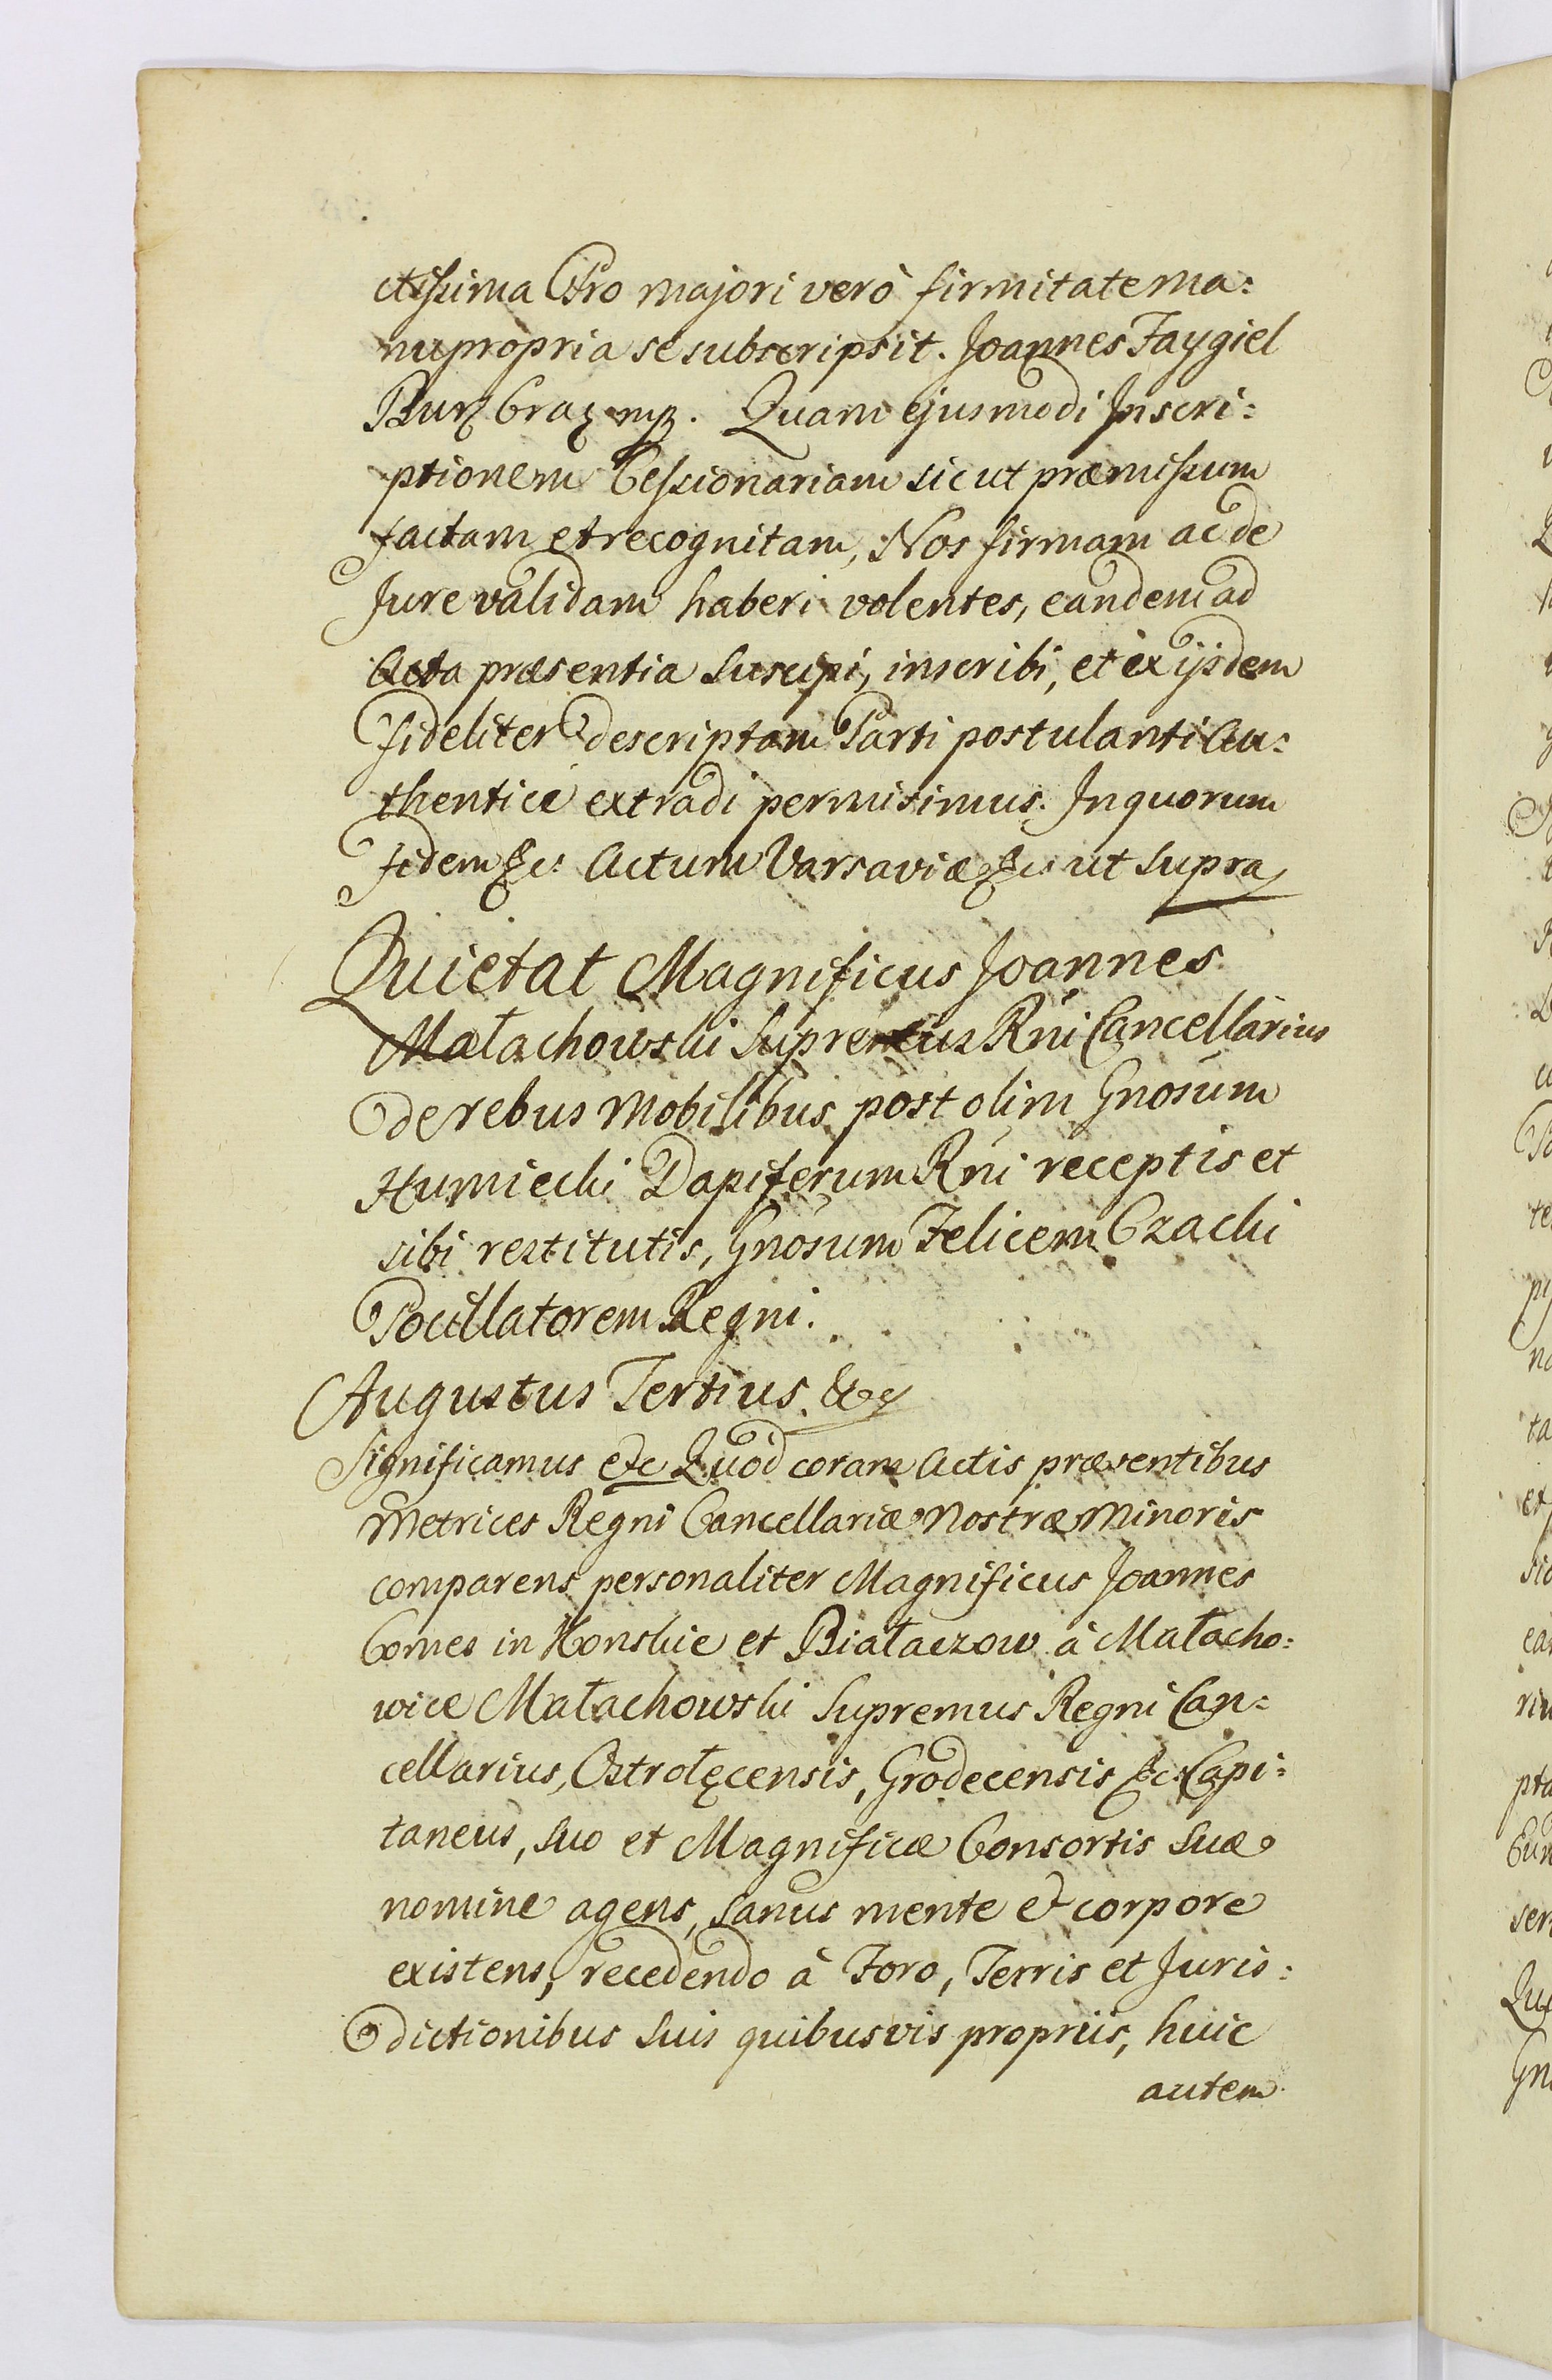 ctissima Pro majori verò firmitate ma:
nu propria se subscripsit. Joannes Faygiel
Burz Graz mp. Quam ejusmodi Inscri:
ptionem Cessionariam sicut præmissum
factam et recognitam, Nos firmam ac de
Jure validam haberi volentes, eandem ad
Acta præsentia suscipi, inscribi, et ex ijsdem
fideliter descriptam Parti postulanti Au:
thenticè extradi permisimus. In quorum
fidem &c: Actum Varsaviæ &c: ut supra
Quietat Magnificus Joannes
Małachowski Supremus Rńi Cancellarius
de rebus mobilibus post olim Gnosum
Humiecki Dapiferum Rńi receptis et
sibi restitutis, Gnosum Felicem Czacki
Pocillatorem Regni.
Augustus Tertius &c
Significamus etc Quod coram Actis præsentibus
Metrices Regni Cancellariæ Nostræ Minoris
comparens personaliter Magnificus Joannes
Comes in Konskie et Białaczow à Małacho:
wice Małachowski Supremus Regni Can:
cellarius, Ostrołęcensis, Grodecensis &c: Capi:
taneus, suo et Magnificæ Consortis suæ
nomine agens, sanus mente et corpore
existens, recedendo à Foro, Terris et Juris:
dictionibus suis quibusvis propriis, huic
autem